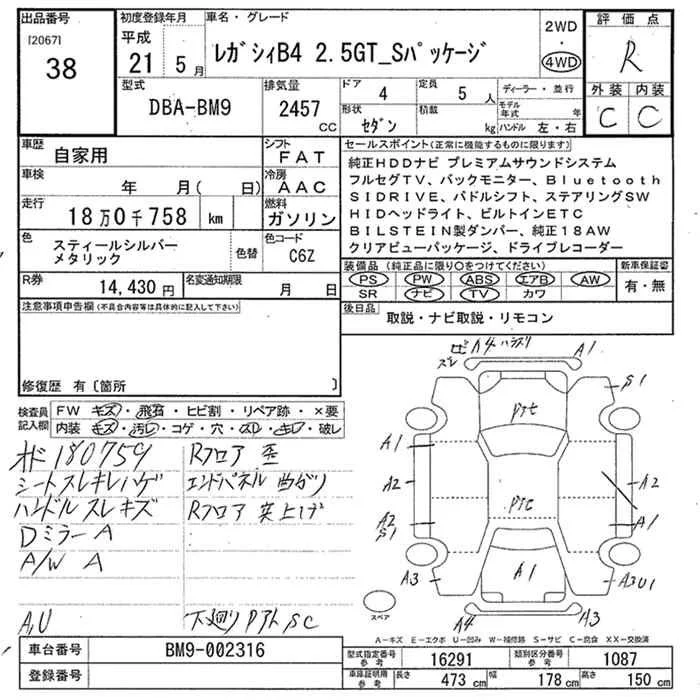 出品番号
[2067]
38
初度登録年月
平成
21 5月
車名・グレード
レガシィB4 2.5GT_Sパッケージ
2WD
・
4WD
評価点
R
外装 内装
C C
型式
DBA-BM9
排気量
2457
CC
ドア 4
定員 5人
形状 セダン
積載 kg
ディーラー・並行
モデル年式 年
ハンドル 左・右
車歴
自家用
シフト
FAT
車検
年 月( 日)
冷房
AAC
走行
18万0千758 km
燃料
ガソリン
色
スティールシルバー
メタリック
色替
色コード
C6Z
R券
14,430円
名変通知期限
月 日
セールスポイント(正常に機能するものに限ります)
純正HDDナビ プレミアムサウンドシステム
フルセグTV、バックモニター、Bluetooth
SIDRIVE、パドルシフト、ステアリングSW
HIDヘッドライト、ビルトインETC
BILSTEIN製ダンパー、純正18AW
クリアビューパッケージ、ドライブレコーダー
装備品(純正品に限り○をつけてください)
PS PW ABS エアB AW
SR ナビ TV カワ
新車保証書
有・無
後日品
取説・ナビ取説・リモコン
注意事項申告欄(不具合内容等は具体的に記入して下さい)
修復歴 有〔箇所 〕
検査員記入欄
FW キズ・飛石・ヒビ割・リペア跡・×要
内装 キズ・汚レ・コゲ・穴・スレ・キレ・破レ
180759
シートスレキレハゲ
ハンドルスレキズ
Dミラー A
A/W A
A,U
Rフロア 歪
エンドパネル 曲がり
Rフロア 突上げ
下廻り Pアト SC
A4 A1
S1
Pit
A1
A2
A2
S1
A3
Pte
A2
A1
A1
A3U1
A4 A3
スペア
A-キズ E-エクボ U-凹み W-補修跡 S-サビ C-腐食 XX-交換済
車台番号
BM9-002316
登録番号
型式指定番号
参考
16291
類別区分番号
参考
1087
車庫証明用
参考
長さ 473 cm
幅 178 cm
高さ 150 cm